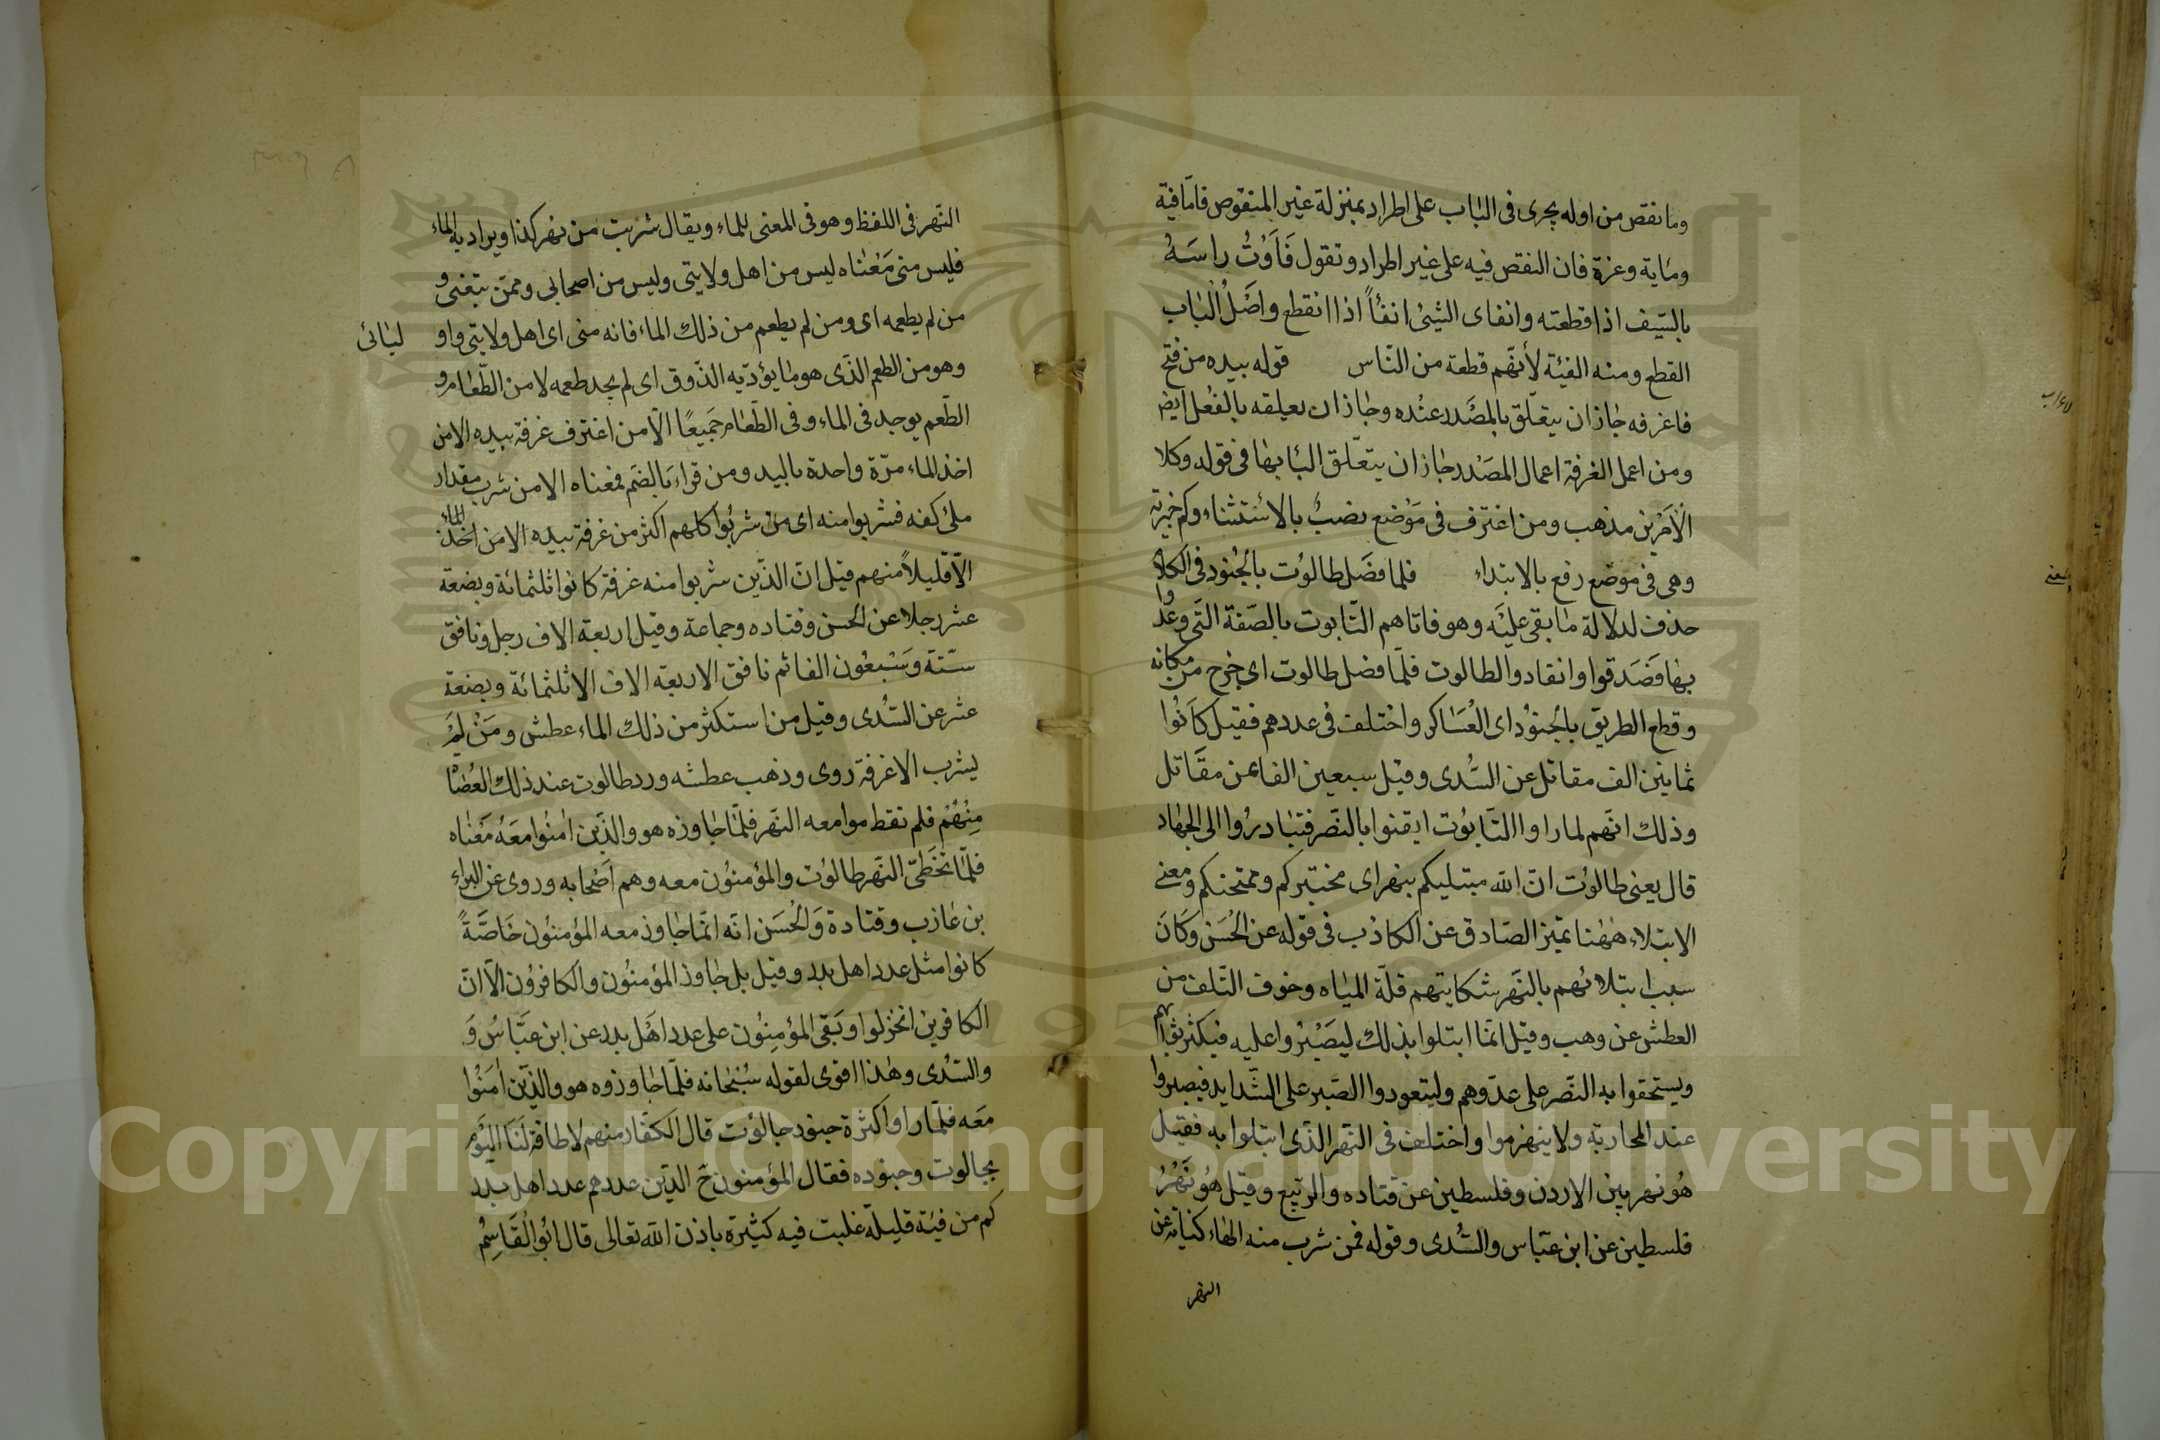 وما نقص من اوله يجرى فى الباب على اطراد بمنزلة غير المنقوص فاما فية
وماية وعزة فان النقص فيه على غير اطراد وتقول فَاَوْتُ راسَهُ
بالسّيف اذا قطعته وانفاى الشيئ انفأً اذا انقطع واصْلُ الباب
القطع ومنه الفئة لأنّهم قطعة من النّاس قوله بيده من فتح
فاء غرفه جاز ان يتعلّق بالمصْدر عنْده وجاز ان يعلقه بالفعْل ايض
ومن اعمل الغرفة اعمال المصَدر جاز ان يتعّلق البأ بها فى قوله وكلا
الْاَمْرين مذهب ومن اغترف فى مَوْضع نصبٌ بالاسْتثناء وكم خبرية
وهى فى موضع رفع بالابتداء فلما فصَل طالوُت بالْجنود فى الكلام
حذف لدلالة ما بقى عليْه وهو فاتاهم التّابوت بالصّفة التّى وعدوا
بها فَصَدقوا وانقادوا لطالوت فلمّا فصل طالوت اى خرج من مكانه
وقطع الطريق بالْجنوُد اى العْسَاكر واختلف فى عددهم فقيل كاَنوُا
ثمانين الف مقاتل عن السّدى وقيل سبعين الفا عن مقَاتل
وذلك انّهم لما راوا التّابوُت ايقنوا بالنّصر فتبادروُا الى الجهاد
قال يعنى طالوُت انّ الله مبتليكم بنهر اى مختبركم وممتحنكم ومعنى
الابتلاء ههُنا تميز الصّادق عن الكاذب فى قوله عن الحْسَن وكَانَ
سبب ابتلائهم بالنّهر شكايتهم قلّة المياه وخوف التّلف من
العطش عن وهب وقيل انّما ابتلوا بذلك ليصَبْرُوا عليه فيكثر ثوابهم
ويستحقوا به النّصر على عدّوهم وليتعودوا الصّبر على الشّدايد فيصبروا
عند المحاربة ولا ينهزموا واختلف فى النّهر الذّى ابتلوا به فقيل
هُو نهر بين الاردن وفلسطين عن قتاده والرّبيع وقيل هُو نَهْرُ
فلسطين عن ابن عبّاس والسُّدى وقوله فمن شرب منه الهاء كناية عن
النهر
النّهر فى اللفظ وهو فى المعنى للماء ويقال شربت من نهر كذا ويراد به الماء
فليس منى مَعْناه ليس من اهل ولايتى وليس من اصحابى وممّن يتبغنى و
من لم يطعمه اى ومن لم يطعم من ذلك الماء فانه منى اى اهل ولايتى واو
ليائى
وهو من الطعم الذّى هو ما يؤدّيه الذّوق اى لم يجد طعمه لا من الطّعام و
الطّعم يوجد فى الماء وفى الطّعام جَميعًا الّا من اغترف غرفة بيده الا من
اخذ الماء مرّة واحدة باليد ومن قراء بالضّم فمعناه الا من شرب مقدار
ملئ كفه فشربوا منه اى من شربُوا كلهم اكثر من غرفة بيده الا من اخذ الماء
الّا قليلاً منهم قيل انّ الذّين شربوا منه غرفة كانوا ثلثمائة وبضعة
عشر رجلا عن الحْسن وقتاده وجماعة وقيل اربعة الاف رجل ونافق
ستّة وسَبْعوُن الفا ثم نافق الاربعة الاف الا ثلثمائة وبضعة
عشر عن السُّدى وقيل من استكثر من ذلك الماء عطش ومَنْ لَمْ
يشرب الا غرفة روى وذهب عطشه ورد طالوت عند ذلك العُصْاة
مِنْهُمْ فلم نقط موا معه النّهر فلمّا جاوزه هو والذّين اٰمنُوا معَهُ مَعْناه
فلمّا تخَطّى النّهر طالوُت والمؤمنوُن معه وهم اَصْحابه وروى عن البراء
بن عازب وقتادة وَالْحُسَن انّه انّما جاوز معه المؤمنوُن خَاصّةً
كانوا مثل عدد اهل بدر وقيل بل جاوز المؤمنُون والكافروُن الّا انّ
الكافرين انخزلوا وبَقى المؤمِنُون على عدد اهْل بدر عن ابن عَبّاسْ وَ
والسّدْى وهٰذا اقوى لقوله سُبْحٰانه فلمّا جاوزوه هو والذّين اٰمَنُوا
معَه فلمّا راوا كثرة جنود جالوُت قال الكفّار منهم لا طاقة لَنَا الْيَوْم
بجالوت وجنوده فقال المؤمنون حَ الذّين عددهم عدد اهل بدر
كم من فية قليلة غلبت فيه كثيرة باذن الله تعالى قال ابُو الْقَاسِمْ
Copyright © King Saud University